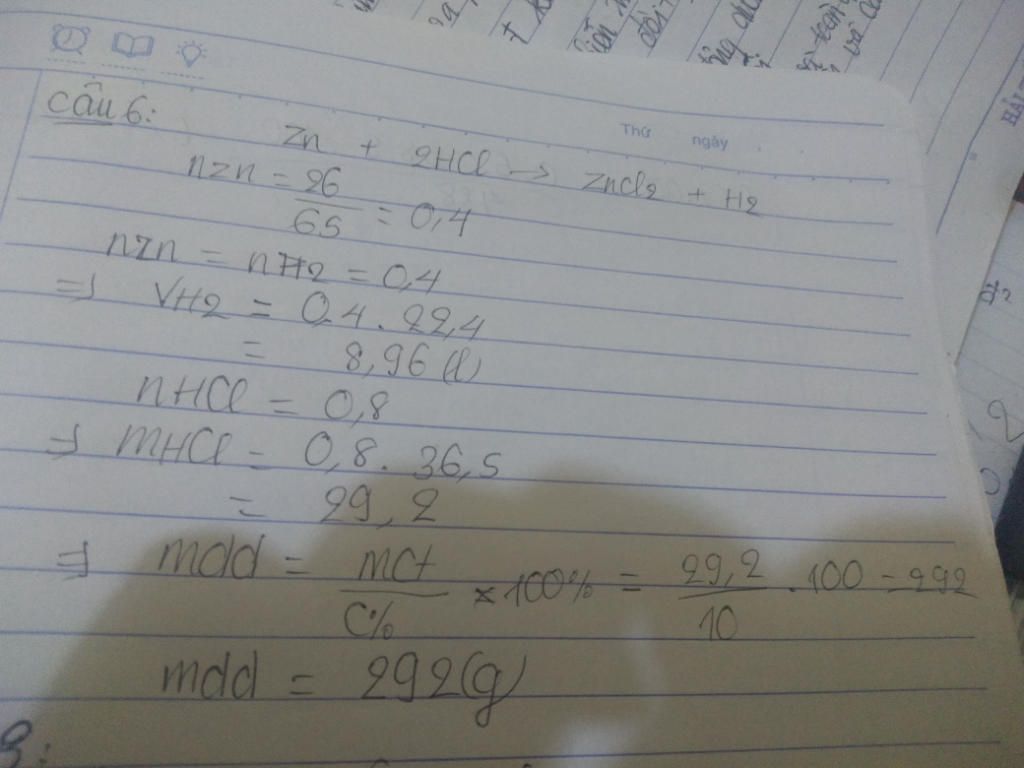 Thứ ngày
Câu 6:
Zn + 2HCl → ZnCl2 + H2
nZn = 26/65 = 0,4
nZn = nH2 = 0,4
=> VH2 = 0,4 . 22,4
= 8,96 (l)
nHCl = 0,8
=> mHCl = 0,8 . 36,5
= 29,2
=> mdd = mct/C% × 100% = 29,2/10 . 100 = 292
mdd = 292(g)